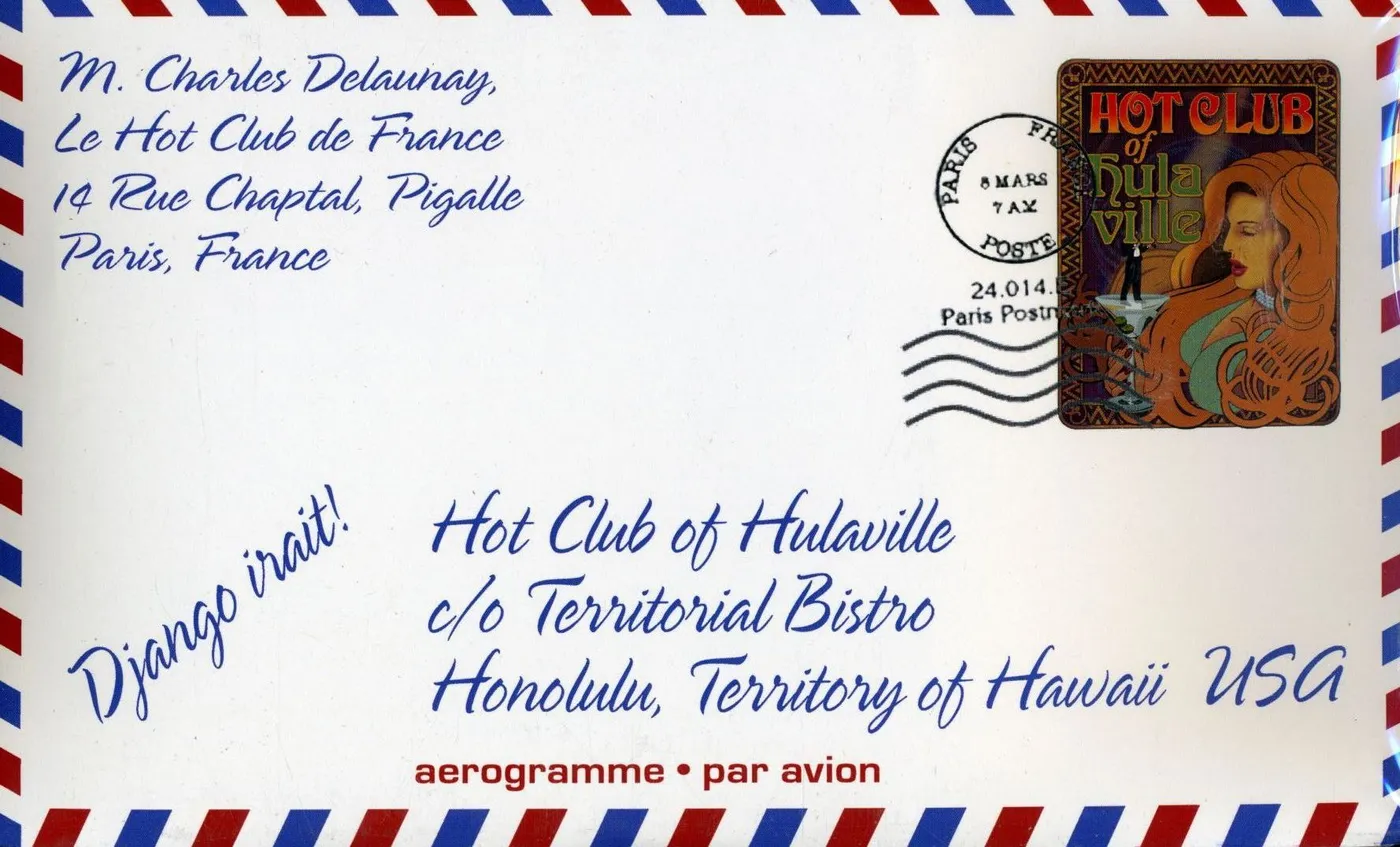 M. Charles Delaunay,
Le Hot Club de France
14 Rue Chaptal, Pigalle
Paris, France
HOT CLUB
of
hula
ville
PARIS
8 MARS
7 AM
POSTE
24.014.
Paris
Django irait!
Hot Club of Hulaville
c/o Territorial Bistro
Honolulu, Territory of Hawaii USA
aerogramme • par avion